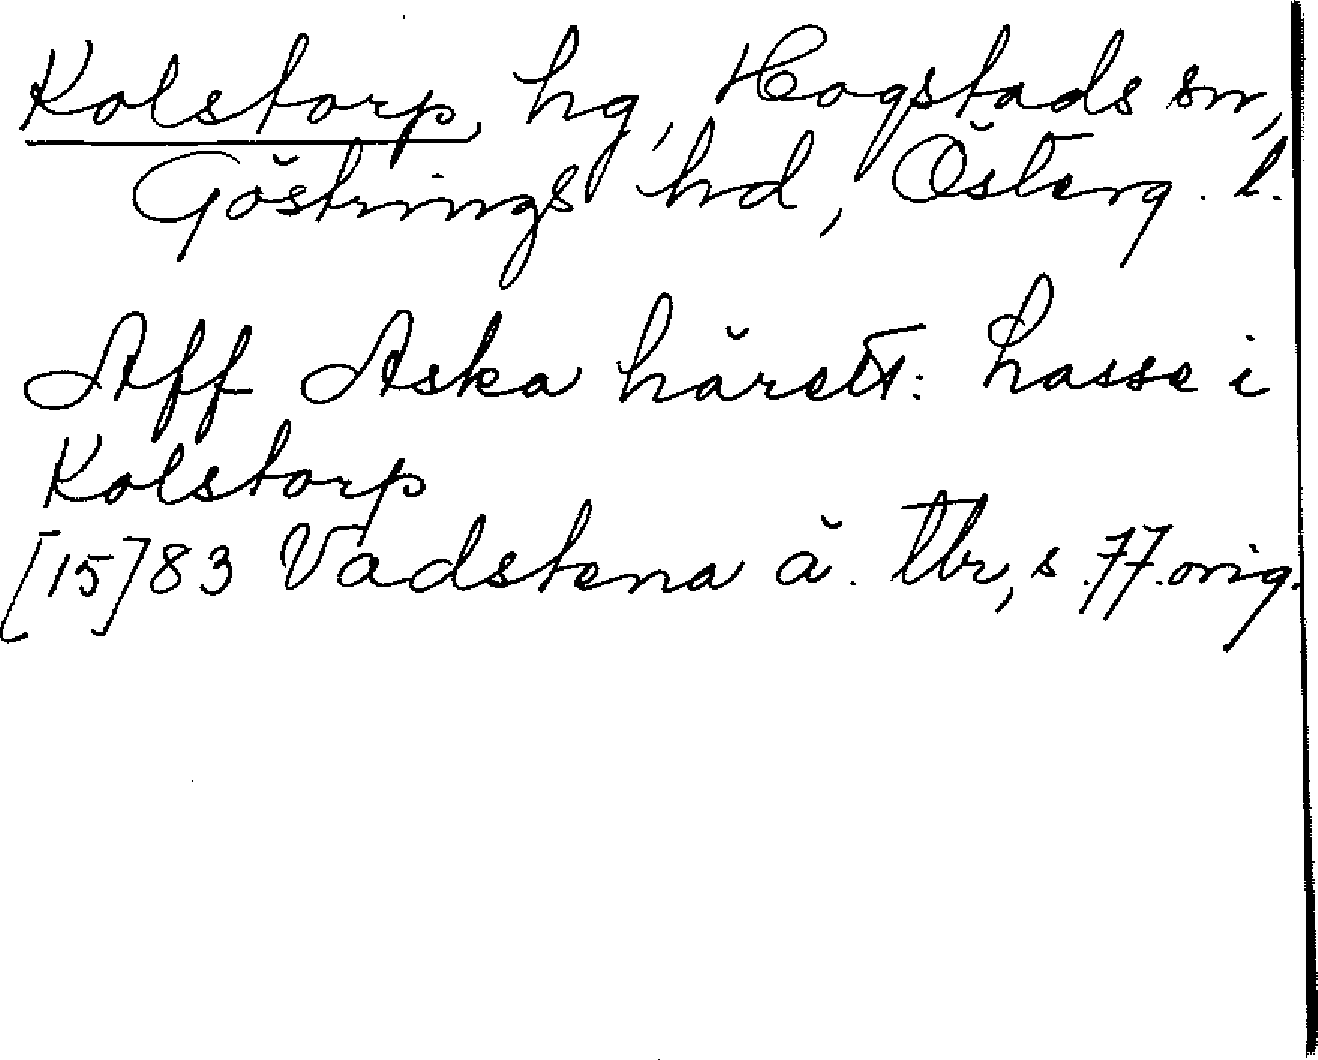 Kolstorp, hg, Hogstads sn,
Göstrings hd, Österg. l.
Aff Aska härett: hasse i
Kolstorp
[15]83 Vadstena ä. tbr, s. 77. orig.